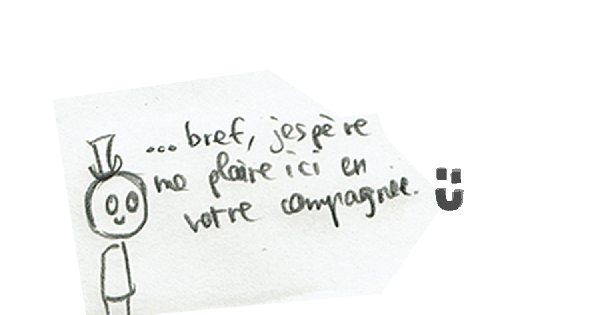 ...bref, jespère
me plaire ici en
votre compagnie.